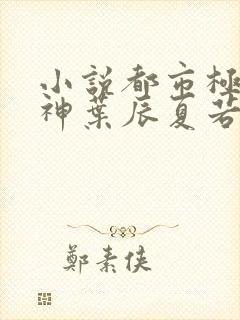 小說都市極
神葉辰夏若
鄭素侠